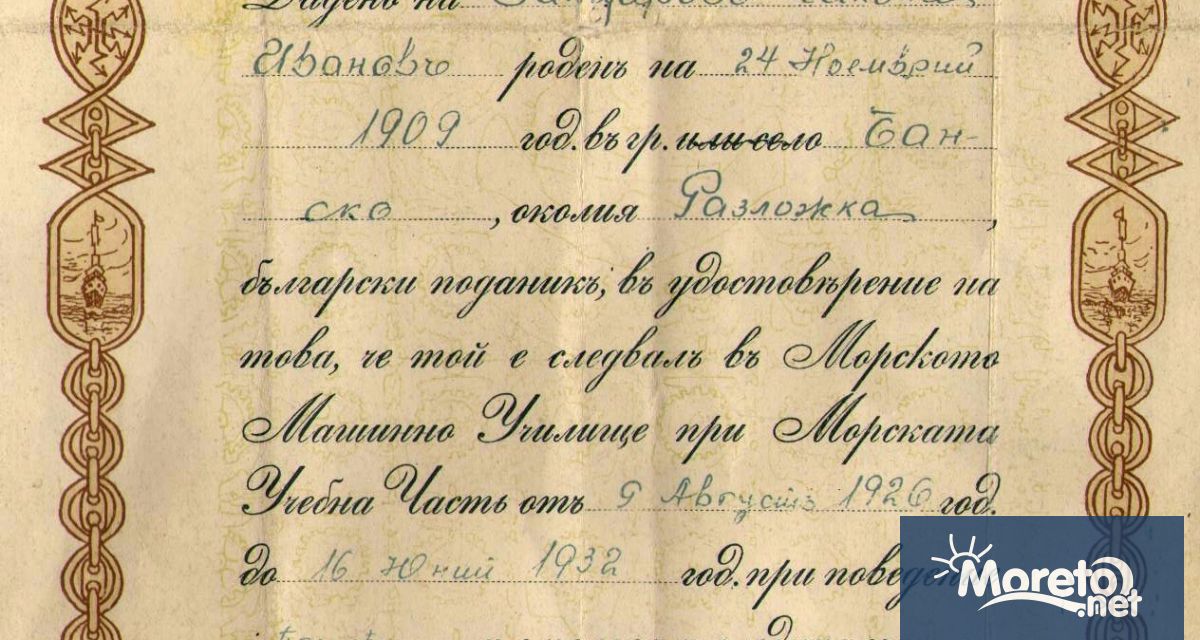 Даденъ на
Ивановъ роденъ на 24 Ноемврий
1909 год. въ гр. или село Бан-
ско, околия Разложка,
български поданикъ, въ удостовѣрение на
това, че той е следвалъ въ Морското
Машинно Училище при Морската
Учебна Часть отъ 9 Августъ 1926 год.
до 16 Юний 1932 год. при
Moreto.net